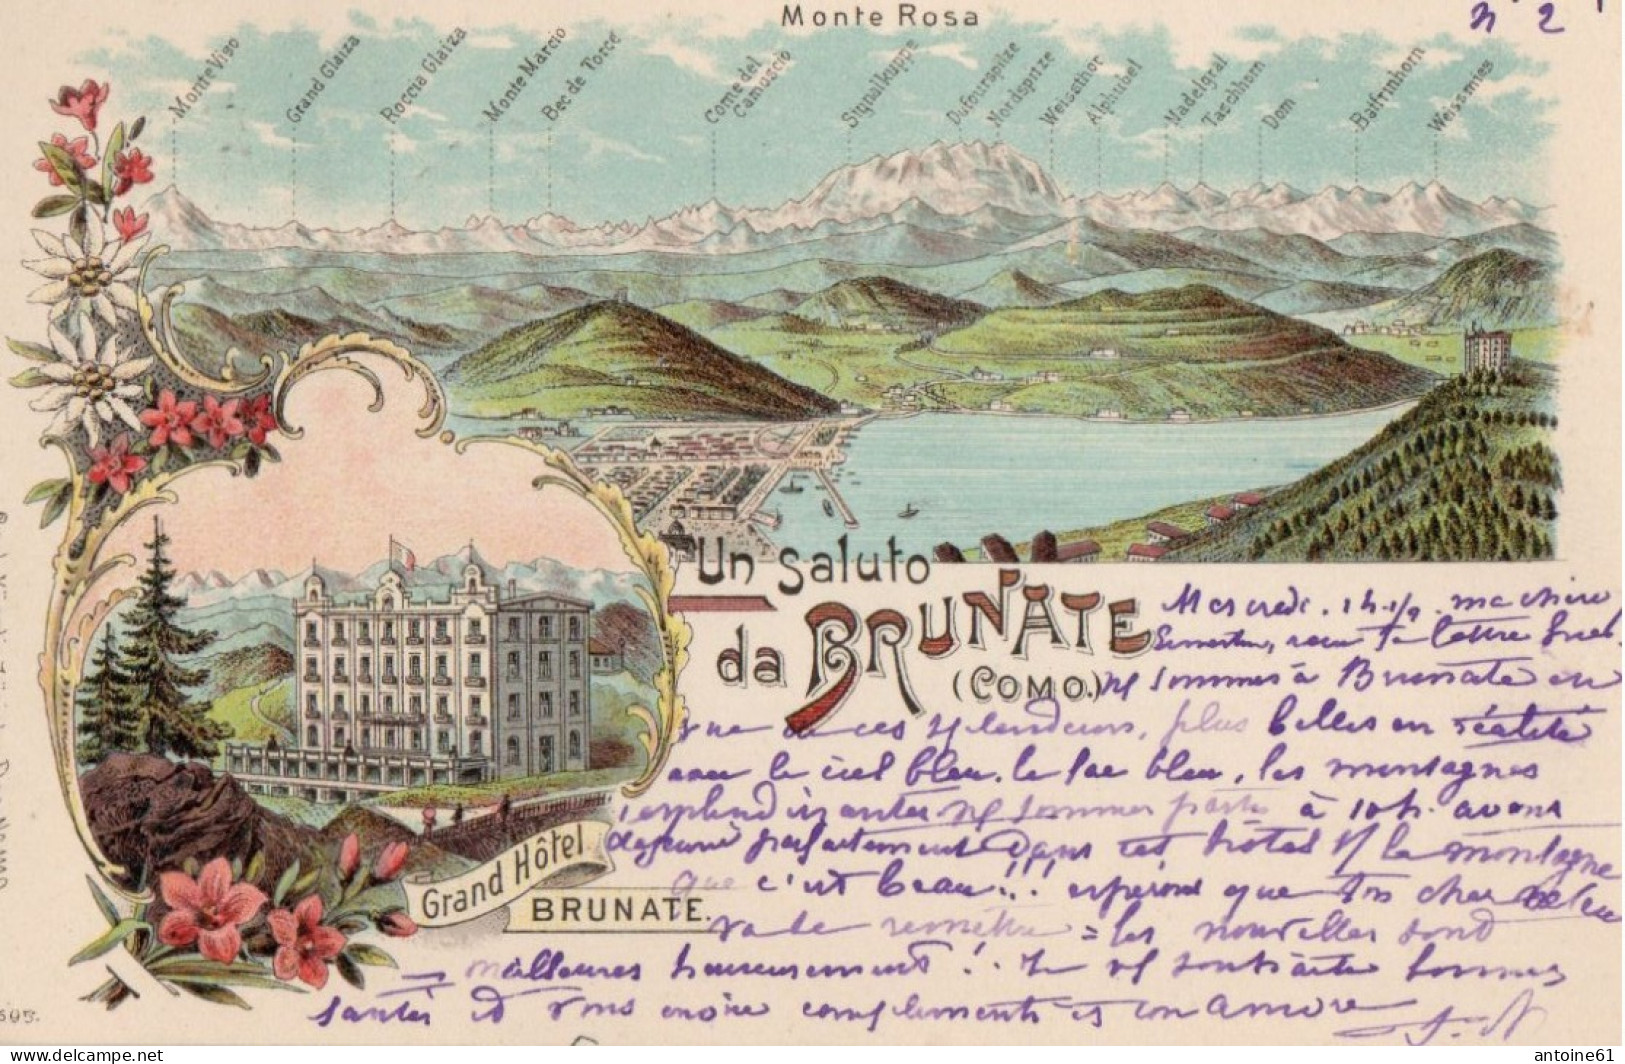 Monte Rosa
n° 2
Monte Viso
Grand Glaiza
Roccia Glaiza
Monte Marcio
Bec de Tocce
Corne del Camoscio
Signalkuppe
Dufourspitze
Nordspitze
Weissthor
Alphubel
Nadelgrat
Taschhorn
Dom
Balfrinhorn
Weissmies
Un Saluto
da BRUNATE
(COMO.)
Mercredi. 1 h. 1/2. ma chère
ta lettre
ns sommes à Brunate en
vue de ces splendeurs, plus belles en réalité
avec le ciel bleu. le lac bleu, les montagnes
resplendissantes ns sommes partis à 10 h. avons
déjeuné parfaitement dans cet hôtel s/ la montagne
que c'est beau!!! espérons que ton cher
va se remettre = les nouvelles sont
meilleures heureusement! Je ns souhaite bonnes
santés et vous envoie compliments et con amore
Grand Hôtel
BRUNATE.
595.
antoine61